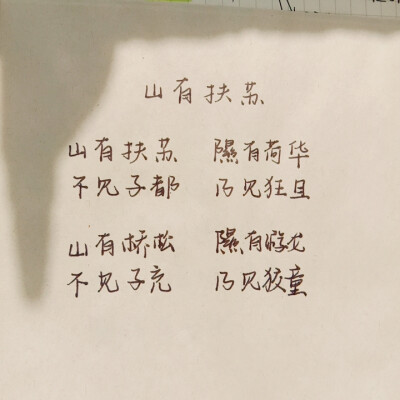 山有扶苏
山有扶苏 隰有荷华
不见子都 乃见狂且
山有桥松 隰有游龙
不见子充 乃见狡童